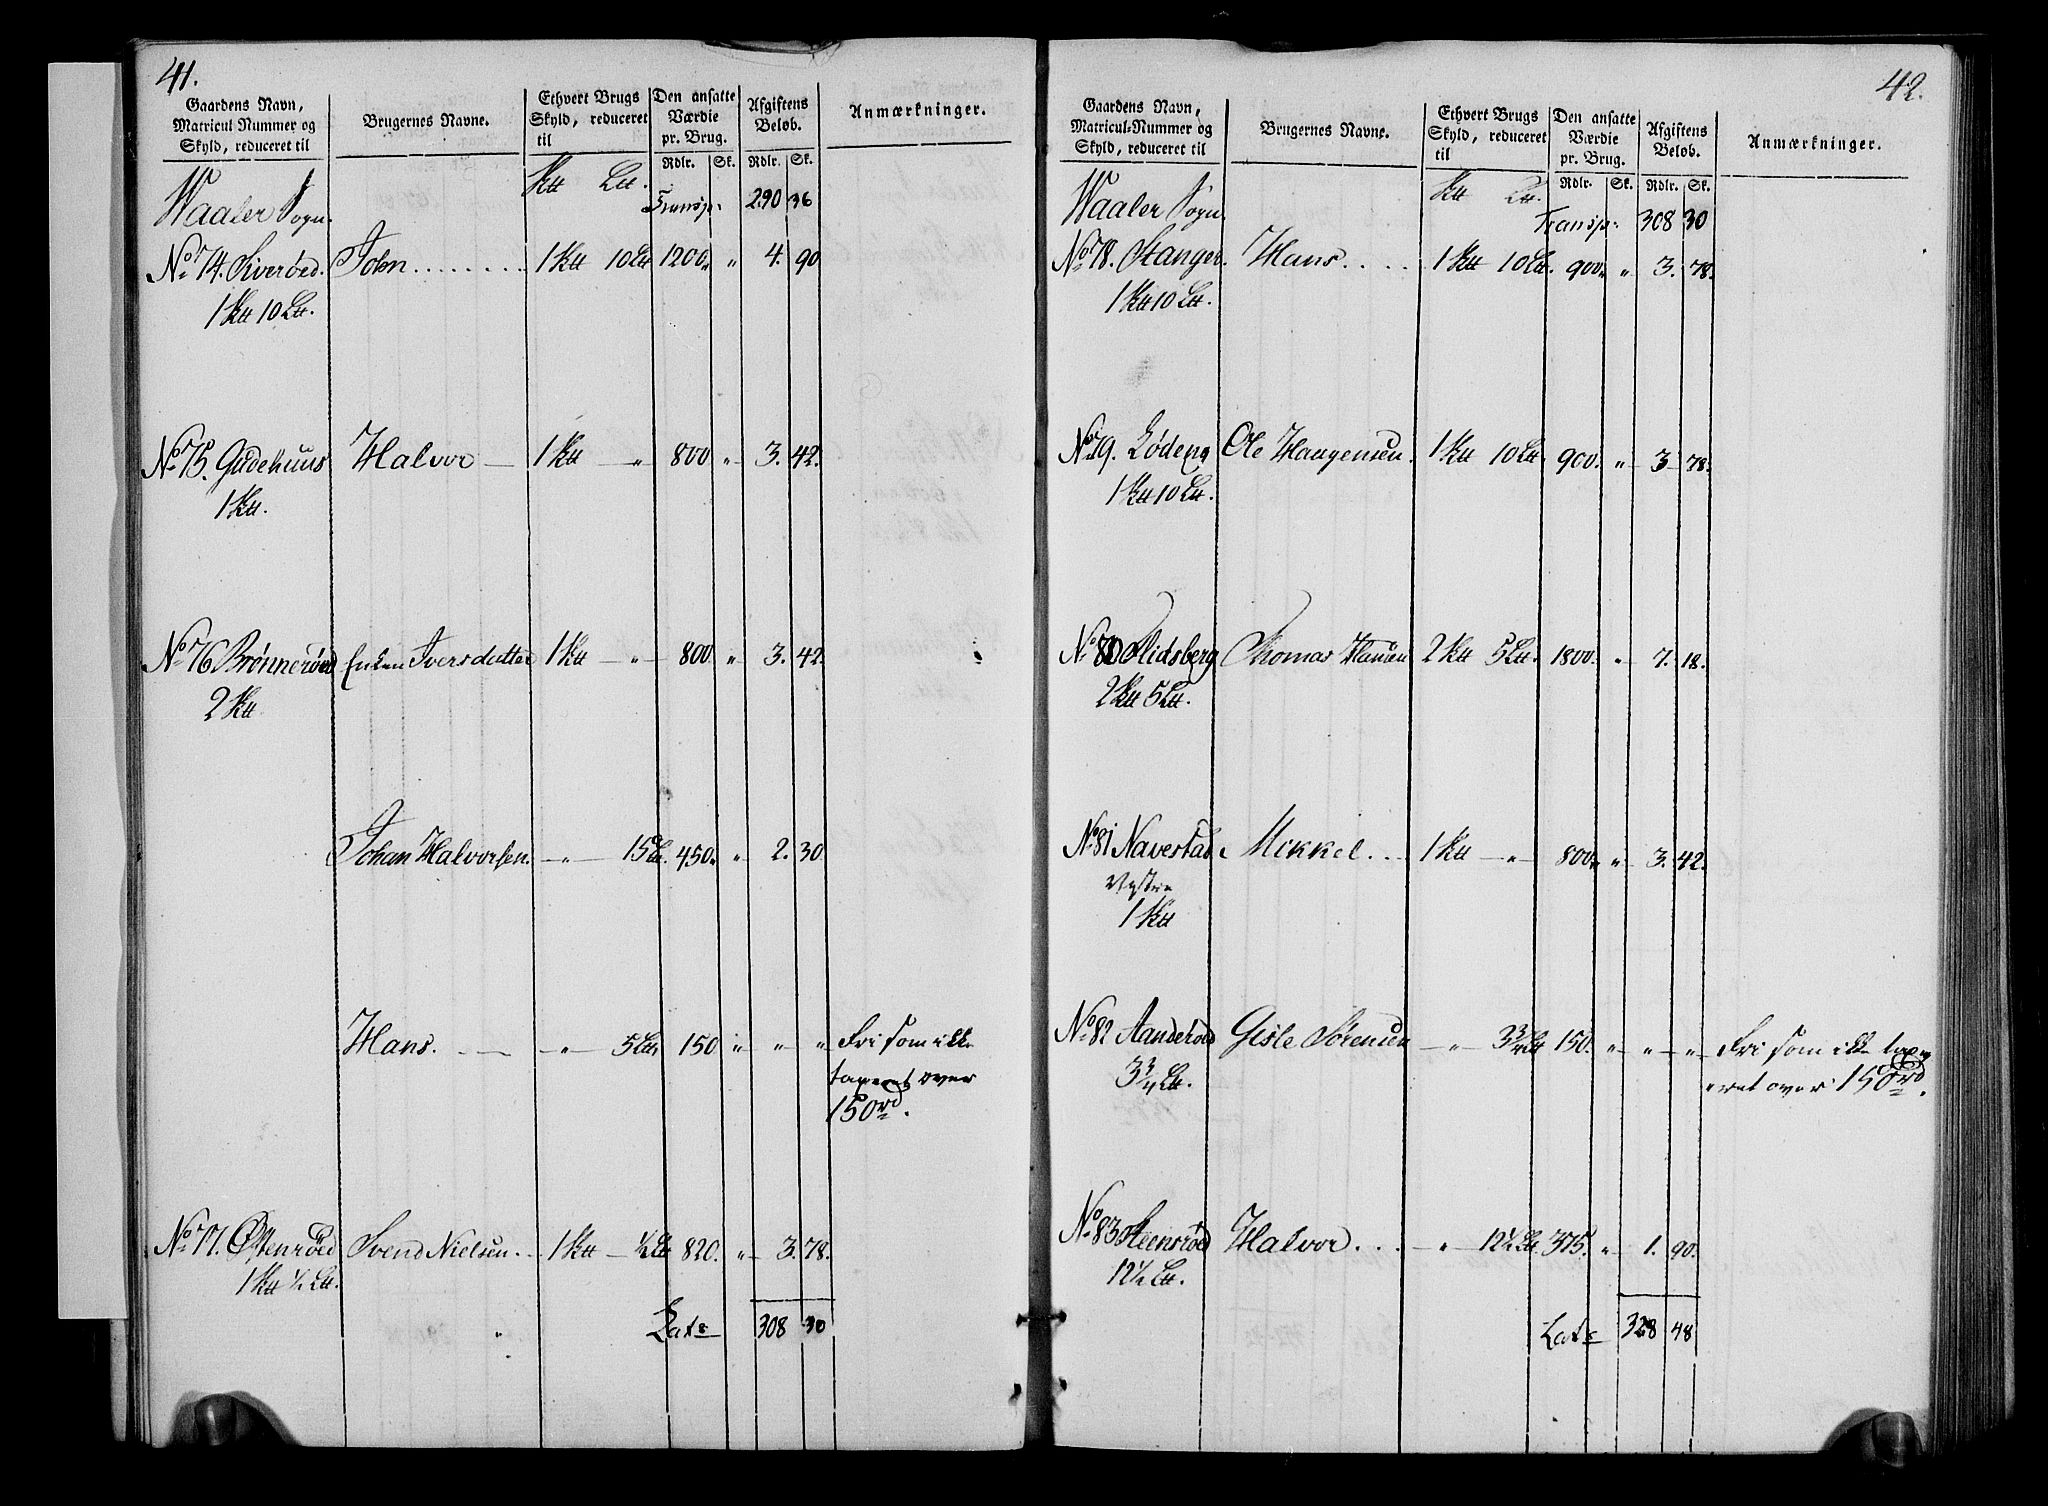 41.
Gaardens Navn, Matricul Nummer og Skyld, reduceret til
Brugernes Navne.
Ethvert Brugs Skyld, reduceret til
Den ansatte Værdie pr. Brug.
Afgiftens Beløb.
Anmærkninger.
Rdlr. Sk. Rdlr. Sk.
Waaler Sogn. Transp: 290 36
No 74. Siverød. John 1 10 1200 " 4. 90
1 10
No 75. Gudehuus Halvor 1 " 800 " 3. 42.
1
No 76 Brønnerød Enken Iversdatter 1 " 800 " 3. 42.
2
Johan Halvorsen. " 15 450 " 2. 30
Hans. " 5 150 " " " Fri som ikke
taxeret over
150 rd.
No 77. Østenrøed Svend Nielsen 1 ½ 820. " 3. 78.
1 ½
Lats 308 30
42.
Gaardens Navn, Matricul-Nummer og Skyld, reduceret til
Brugernes Navne.
Ethvert Brugs Skyld, reduceret til
Den ansatte Værdie pr. Brug.
Afgiftens Beløb.
Anmærkninger.
Rdlr. Sk. Rdlr. Sk.
Waaler Sogn. Transp: 308 30
No 78. Stanger. Hans 1 10 900 " 3. 78.
1 10
No 79. Lødeng Ole Haagensen. 1 10 900. " 3 78.
1 10
No 80 Slidsberg Thomas Hansen 2 5 1800. " 7. 18.
2 5
No 81 Navestad Mikkel 1 " 800 " 3. 42.
Vestre
1
No 82 Aanderød Gisle Sørensen " 3¾ 150. " " " Fri som ikke tax-
eret over 150 rd.
3¾
No 83 Steensrød Halvor " 12½ 375. " 1. 90.
12½
Lats 328 48